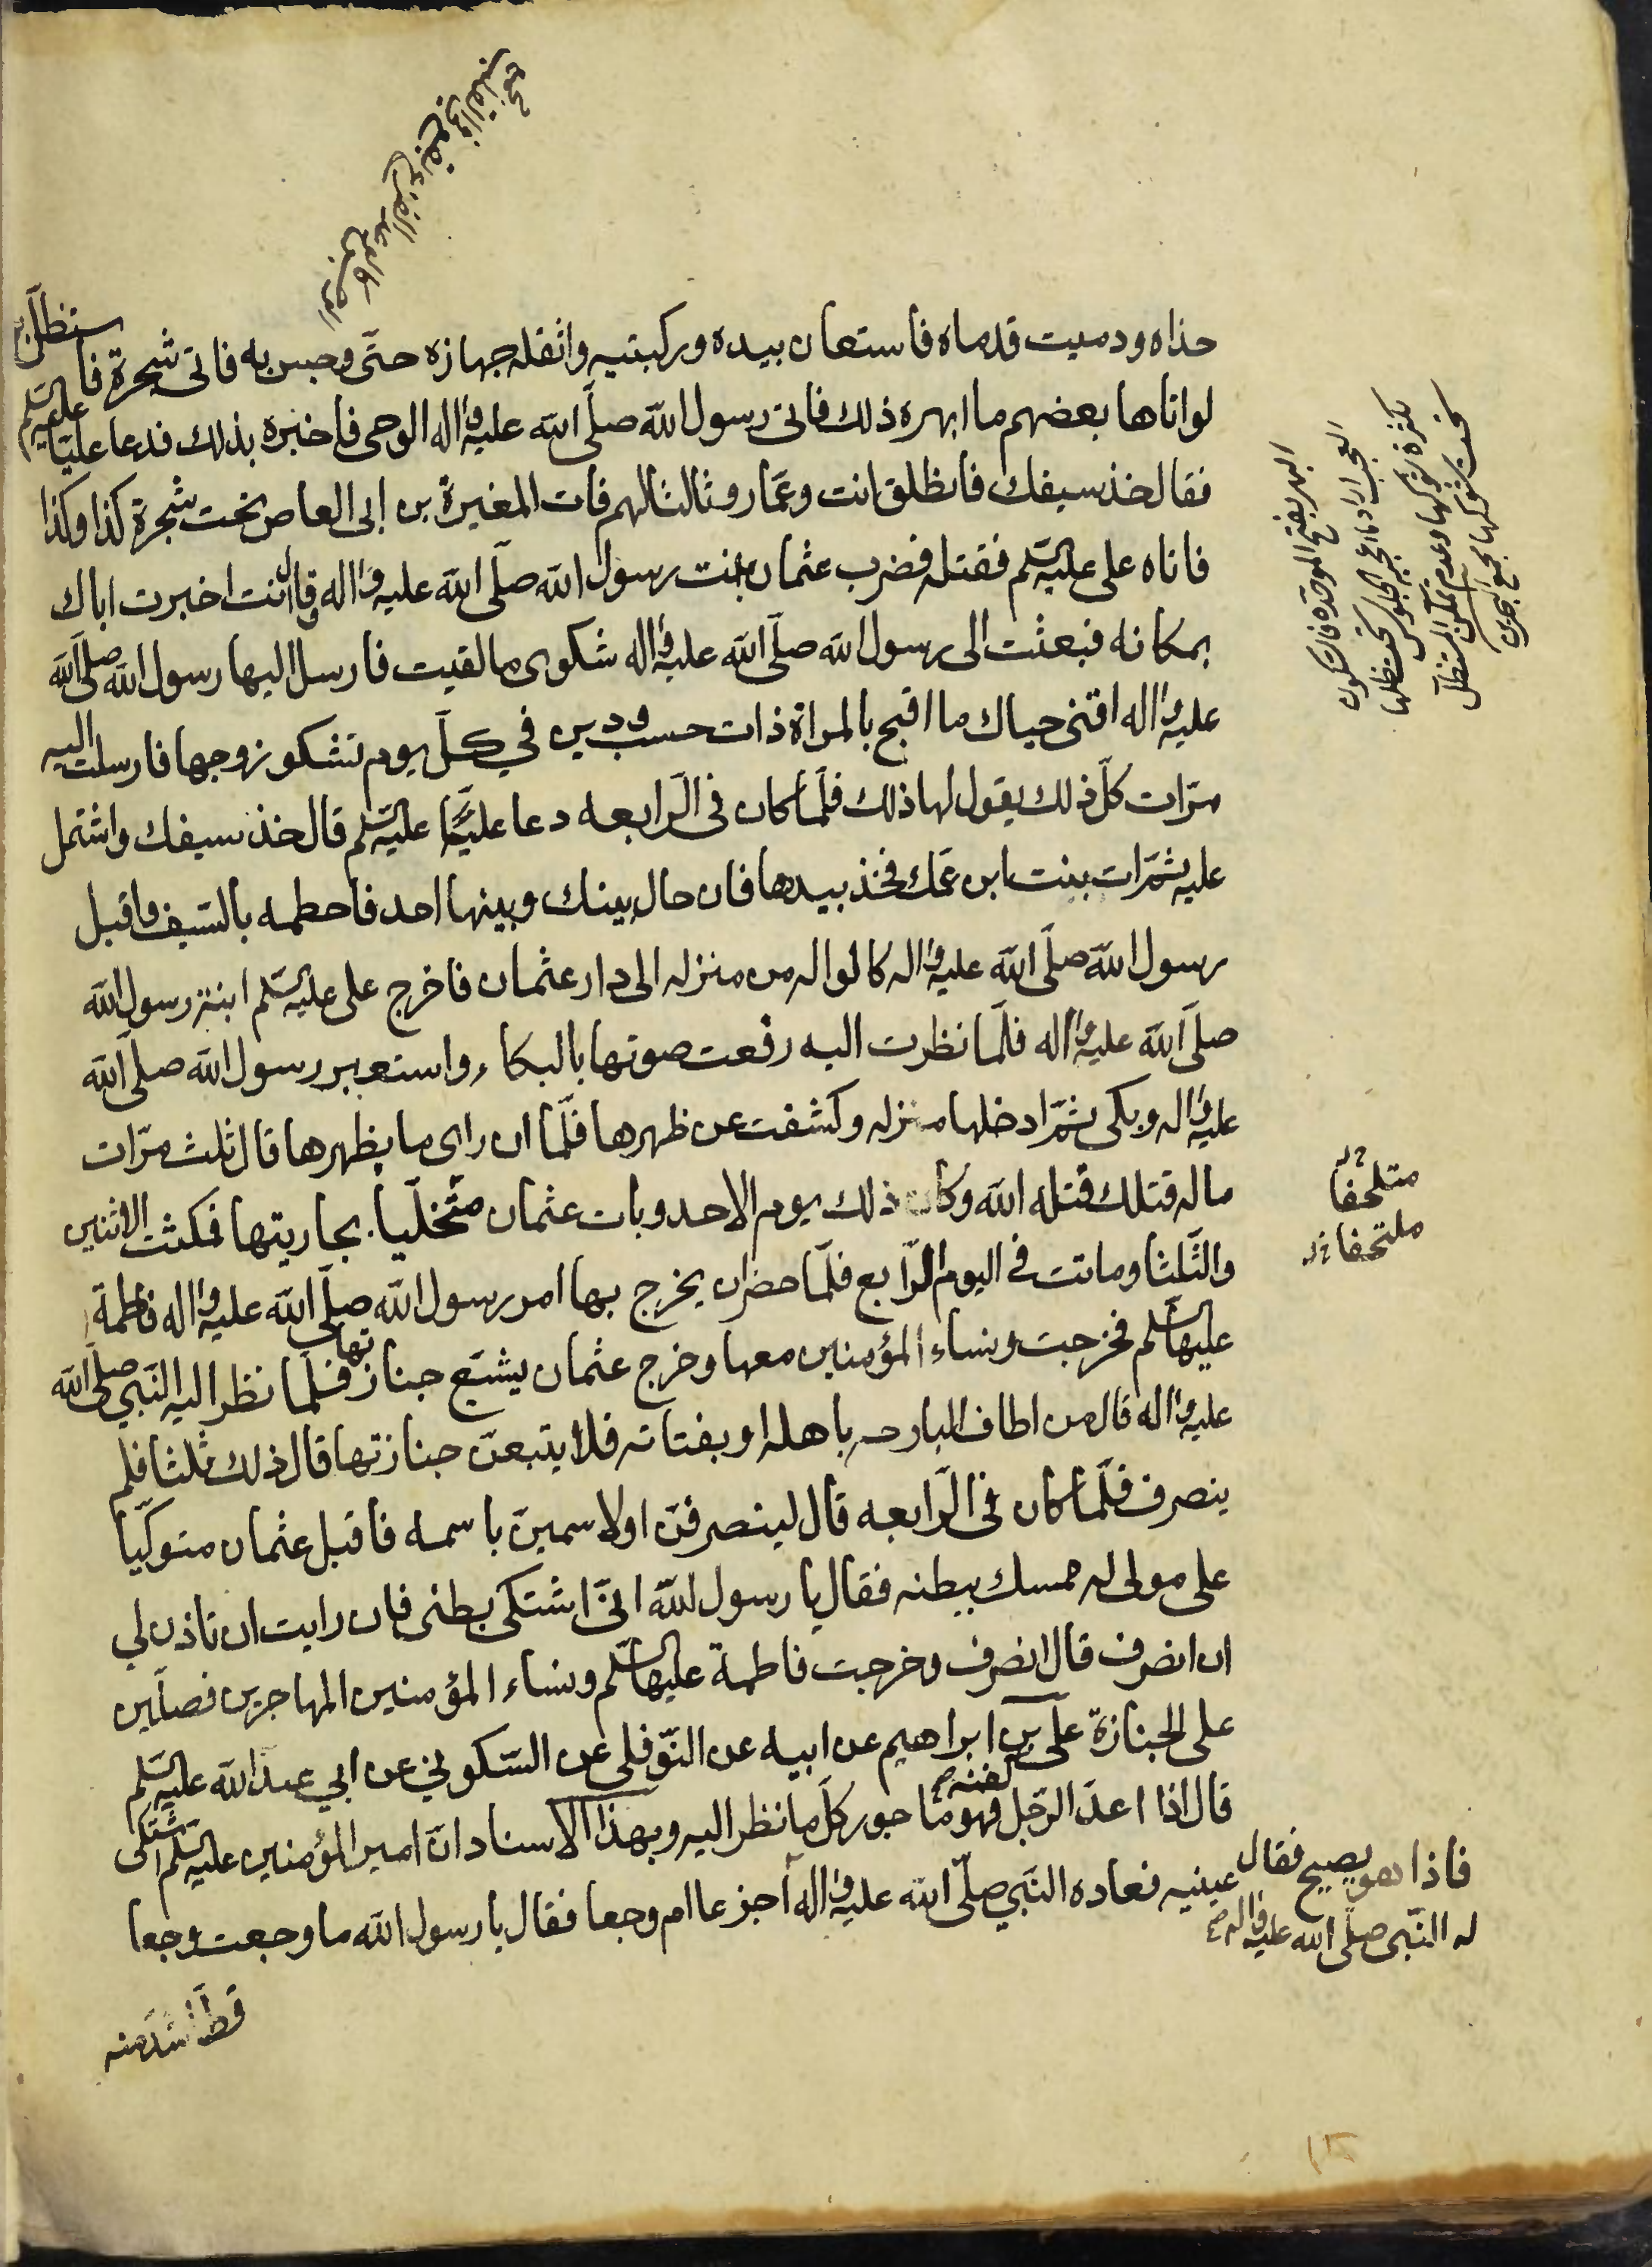 حذاه ودميت قدماه فاستعان بيده وركبتيه واثقله جهازه حتّى وجس به فاتى شجرة فاستظلّ بها
لو اتاها بعضهم ما ابهره ذلك فاتى رسول الله صلّى الله عليه واله الوحى فاخبره بذلك فدعا عليّا عليه السّلم
فقال خذ سيفك فانطلق انت وعمّار وثالثا لهم فات المغيرة بن ابى العاص تحت شجرة كذا وكذا
فاتاه على عليه السّلم فقتله فضرب عثمان بنت رسول الله صلّى الله عليه واله وقال انت اخبرت اباك
بمكانه فبعثت الى رسول الله صلّى الله عليه واله شكوى ما لقيت فارسل اليها رسول الله صلّى الله
عليه واله اقنى حياك ما اقبح بالمراة ذات حسب ودين في كلّ يوم تشكو زوجها فارسلت اليه
مرّات كلّ ذلك يقول لها ذلك فلمّا كان فى الرّابعه دعا عليّا عليه السّلم قال خذ سيفك واشتمل
عليه ثمّ ات بنت ابن عمّك فخذ بيدها فان حال بينك وبينها احد فاحطمه بالسّيف واقبل
رسول الله صلّى الله عليه واله كالواله من منزله الى دار عثمان فاخرج على عليه السّلم ابنة رسول الله
صلّى الله عليه واله فلمّا نظرت اليه رفعت صوتها بالبكاء واستعبر رسول الله صلّى الله
عليه واله وبكى ثمّ ادخلها منزله وكشفت عن ظهرها فلمّا ان راى ما بظهرها قال ثلث مرّات
ما له قتلك قتله الله وكان ذلك يوم الاحد وبات عثمان متخلّيا بجاريتها فمكثت الاثنين
والثّلثا وماتت فى اليوم الرّابع فلمّا حضر ان يخرج بها امر رسول الله صلّى الله عليه واله فاطمة
عليها السّلم فخرجت ونساء المؤمنين معها وخرج عثمان يشيّع جنازتها فلمّا نظر اليه النّبي صلّى الله
عليه واله قال من اطاف البارحه باهله او بفتاته فلا يتبعنّ جنازتها قال ذلك ثلثا فلم
ينصرف فلمّا كان فى الرّابعه قال لينصرفنّ او لاسمينّ باسمه فاقبل عثمان متوكّيا
على مولى له ممسك ببطنه فقال يا رسول الله انّى اشتكى بطنى فان رايت ان تاذن لي
ان انصرف قال انصرف وخرجت فاطمة عليها السّلم ونساء المؤمنين المهاجرين فصلّين
على الجنازة على بن ابراهيم عن ابيه عن النّوفلى عن السّكونى عن ابي عبد الله عليه السّلم
قال اذا اعدّ الرّجل كفنه فهو ماجور كلّ ما نظر اليه وبهذا الاسناد انّ امير المؤمنين عليه السّلم اشتكى
عينيه فعاده النّبي صلّى الله عليه واله فاذا هو يصيح فقال
له النّبى صلّى الله عليه واله اجزعا ام وجعا فقال يا رسول الله ما وجعت وجعا
قطّ اشدّ منه
البهر بفتح الموحّدة فالسّكون
العجب اراد ما اعجبه الجلوس تحت ظلها
لكثرة شوكها وعدم تمكّن المستظلّ
تحت شوكها مجمع البحرين
متلحفا
ملتحفا